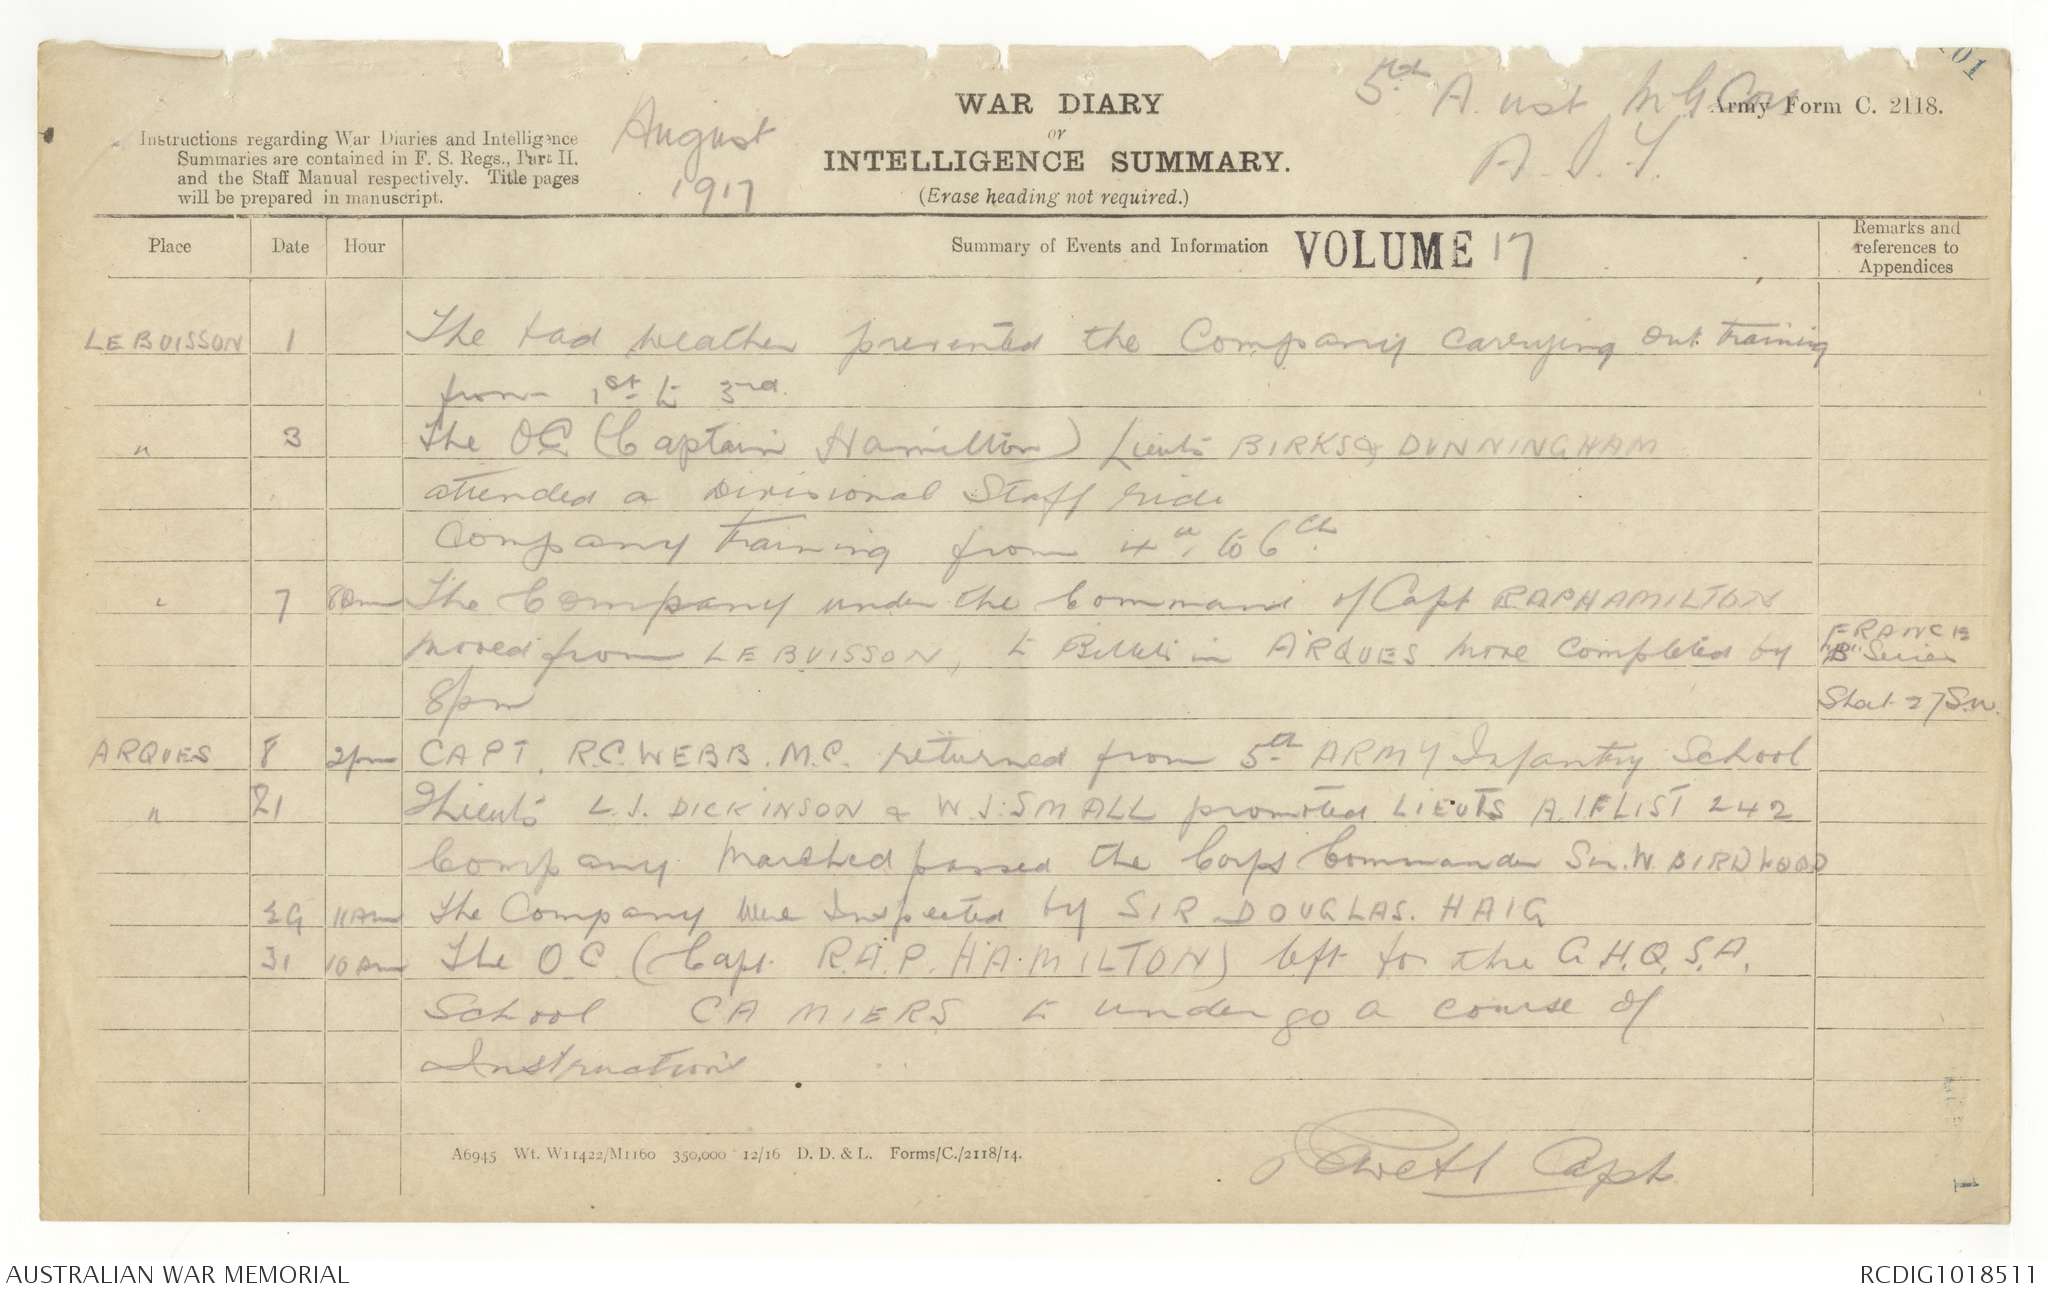 WAR DIARY
or
INTELLIGENCE SUMMARY.
(Erase heading not required.)
Instructions regarding War Diaries and Intelligence
Summaries are contained in F. S. Regs., Part II.
and the Staff Manual respectively. Title pages
will be prepared in manuscript.
August
1917
5th Aust M G Coy
A.I.F.
Army Form C. 2118.
Place Date Hour Summary of Events and Information VOLUME 17 Remarks and
references to
Appendices
LE BUISSON 1 The bad weather prevented the Company carrying out training
from 1st to 3rd.
" 3 The OC (Captain Hamilton) Lieuts BIRKS & DUNNINGHAM
attended a Divisional Staff ride
Company training from 4th to 6th
" 7 8am The Company under the Command of Capt RAPHAMILTON
moved from LE BUISSON, to Billets in ARQUES move completed by FRANCE "B" Series
8pm Sheet 27 S.W.
ARQUES 8 2pm CAPT. R.C. WEBB. M.C. returned from 5th ARMY Infantry School
" 21 Lieuts L.J. DICKINSON & W.J. SMALL promoted LIEUTS A.I.F LIST 242
Company Marched passed the Corps Commander Sir. W. BIRDWOOD
29 11am The Company were Inspected by SIR DOUGLAS. HAIG
31 10am The OC (Capt. R.A.P. HAMILTON) left for the G.H.Q.S.A.
School CAMIERS to undergo a course of
Instruction
Capt
A6945 Wt. W11422/M1160 350,000 12/16 D. D. & L. Forms/C./2118/14.
1
AUSTRALIAN WAR MEMORIAL
RCDIG1018511